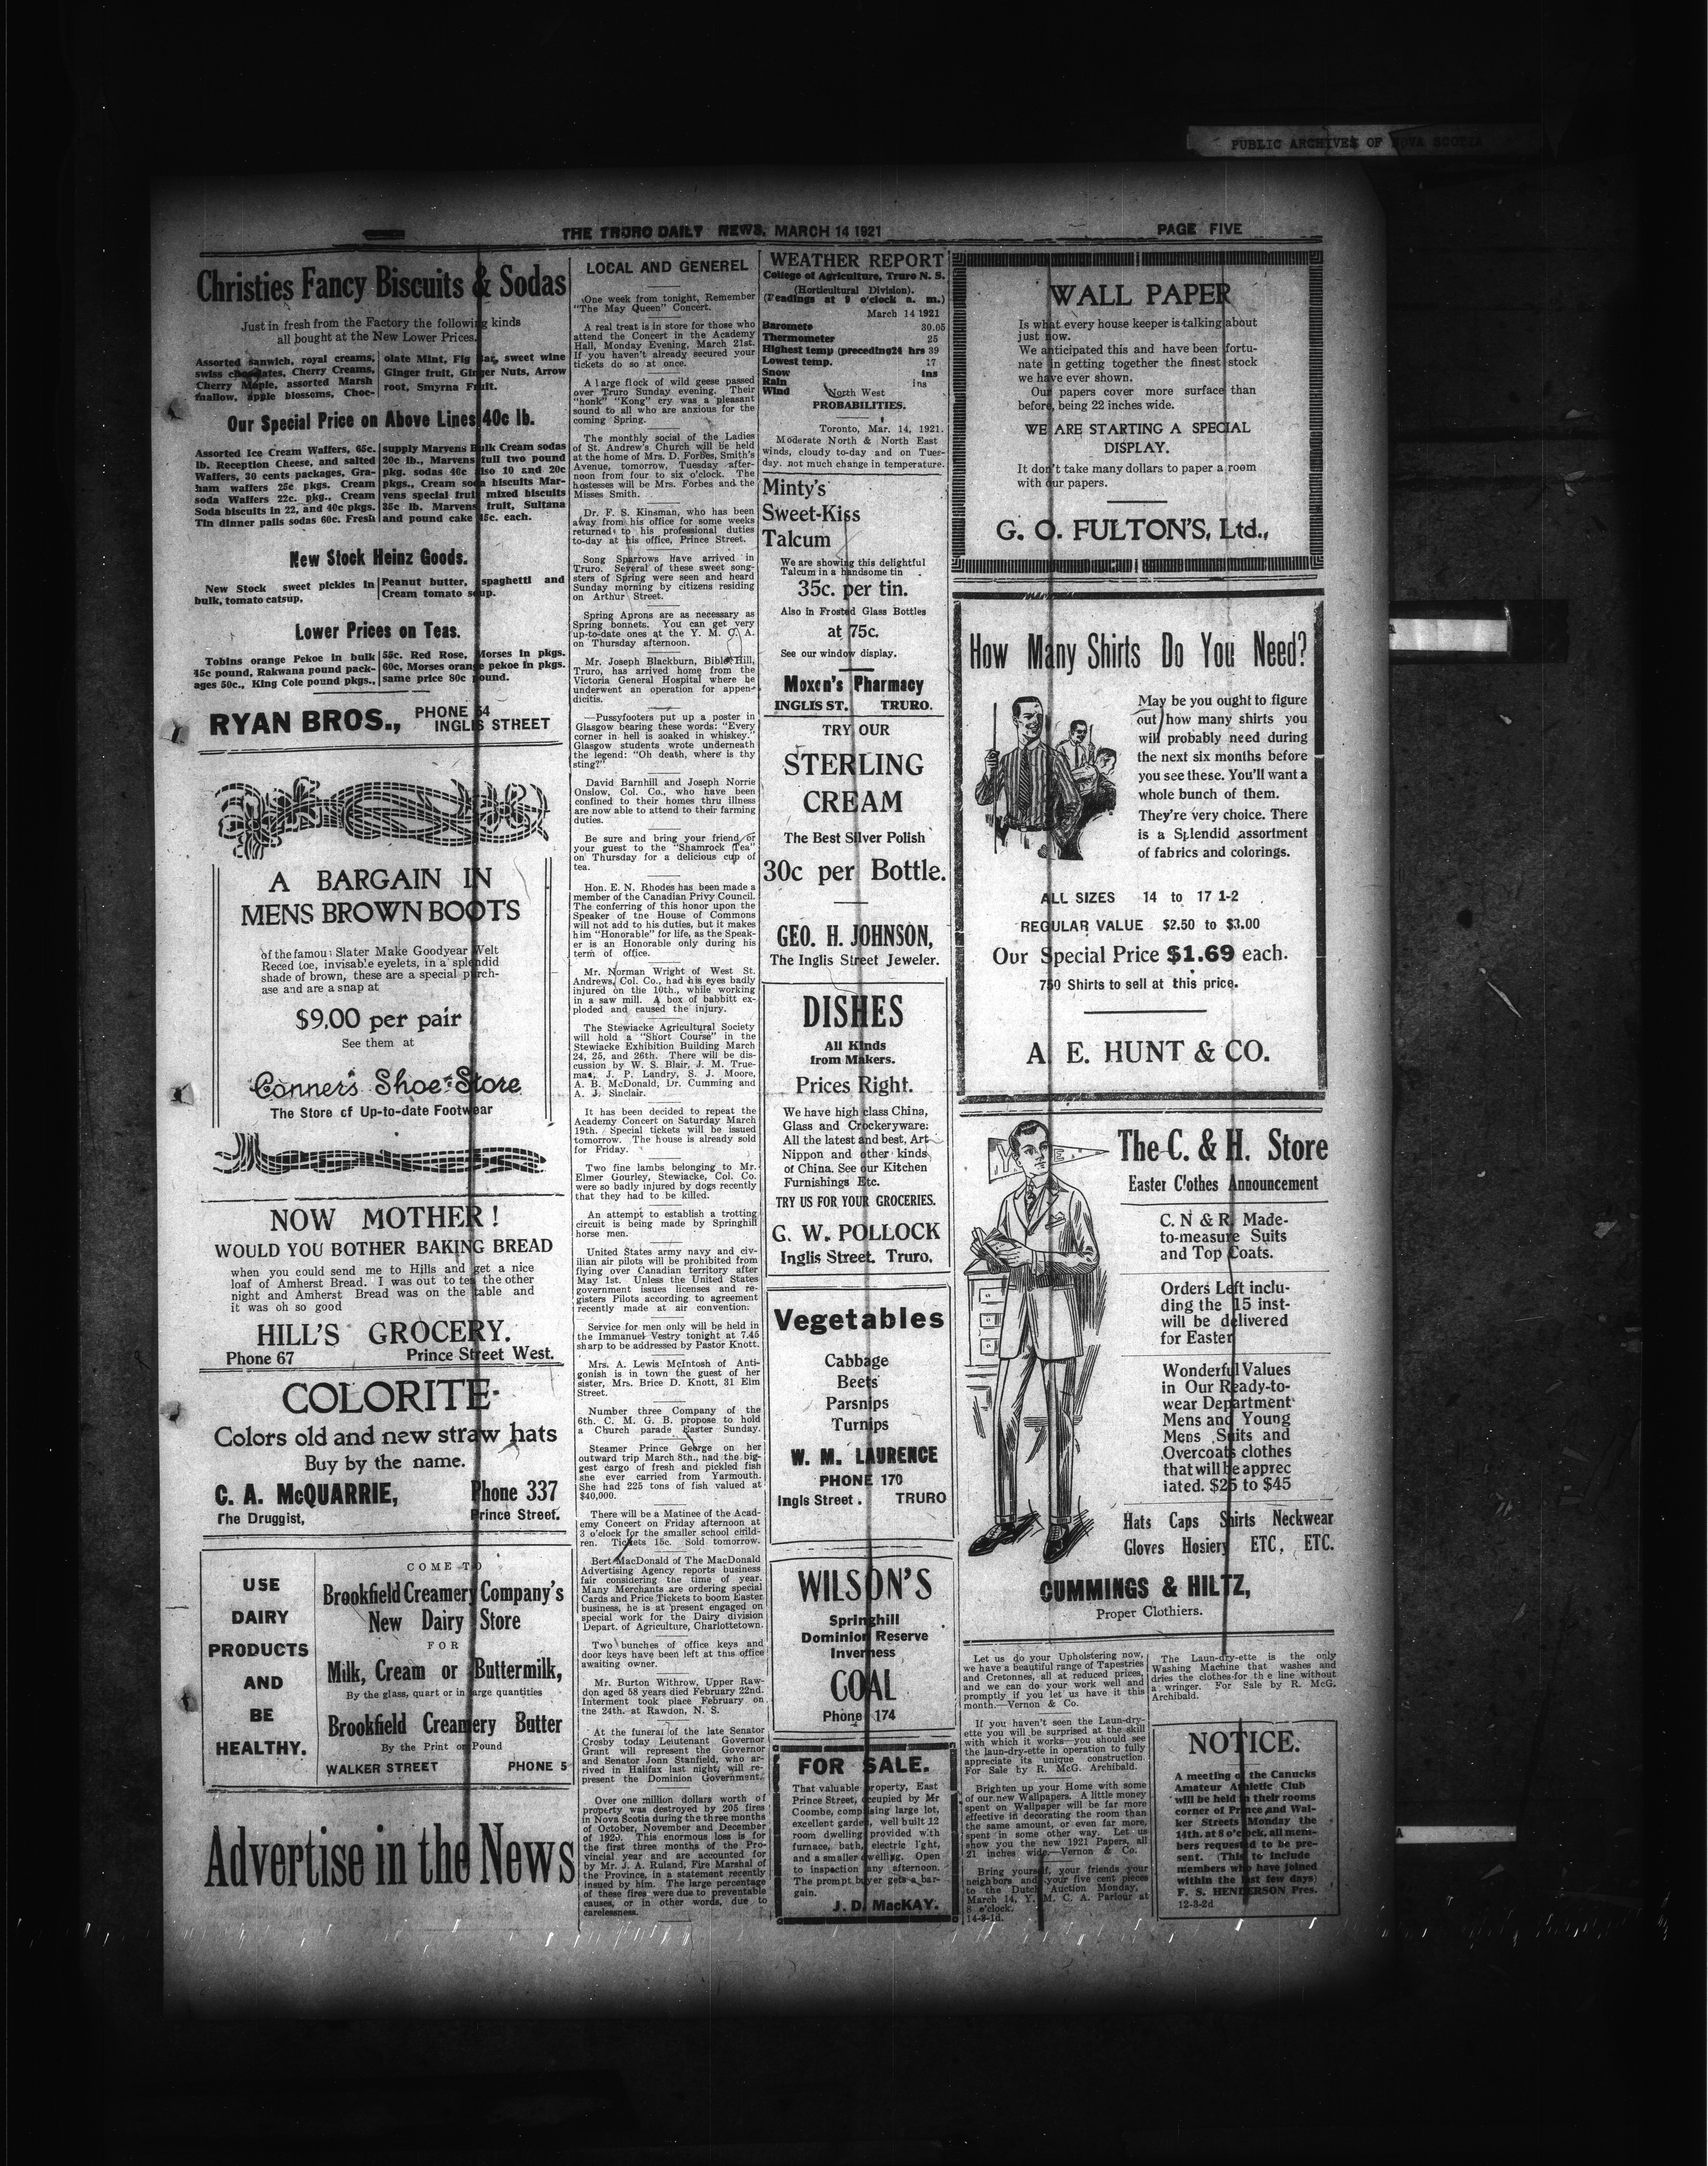 PUBLIC ARCHIVES OF NOVA SCOTIA
THE TRURO DAILY NEWS, MARCH 14 1921
PAGE FIVE
Christies Fancy Biscuits & Sodas
Just in fresh from the Factory the following kinds
all bought at the New Lower Prices.
Assorted sanwich, royal creams,
swiss chocolates, Cherry Creams,
Cherry Maple, assorted Marsh
mallow, apple blossoms, Choc-
olate Mint, Fig Bar, sweet wine
Ginger fruit, Ginger Nuts, Arrow
root, Smyrna Fruit.
Our Special Price on Above Lines 40c lb.
Assorted Ice Cream Waffers, 65c.
lb. Reception Cheese, and salted
Waffers, 30 cents packages, Gra-
ham waffers 25c pkgs. Cream
soda Waffers 22c. pkg., Cream
Soda biscuits in 22, and 40c pkgs.
Tin dinner pails sodas 60c. Fresh
supply Marvens Bulk Cream sodas
20c lb., Marvens full two pound
pkg. sodas 40c also 10 and 20c
pkgs., Cream soda biscuits Mar-
vens special fruit mixed biscuits
35c lb. Marvens fruit, Sultana
and pound cake 45c. each.
New Stock Heinz Goods.
New Stock sweet pickles in
bulk, tomato catsup.
Peanut butter, spaghetti and
Cream tomato soup.
Lower Prices on Teas.
Tobins orange Pekoe in bulk
45c pound, Rakwana pound pack-
ages 50c., King Cole pound pkgs.,
55c. Red Rose, Morses in pkgs.
60c, Morses orange pekoe in pkgs.
same price 80c pound.
RYAN BROS.,
PHONE 54
INGLIS STREET
A BARGAIN IN
MENS BROWN BOOTS
of the famous Slater Make Goodyear Welt
Reced toe, invisable eyelets, in a splendid
shade of brown, these are a special purch-
ase and are a snap at
$9.00 per pair
See them at
Conner's Shoe Store
The Store of Up-to-date Footwear
NOW MOTHER!
WOULD YOU BOTHER BAKING BREAD
when you could send me to Hills and get a nice
loaf of Amherst Bread. I was out to tea the other
night and Amherst Bread was on the table and
it was oh so good
HILL'S GROCERY.
Phone 67
Prince Street West.
COLORITE
Colors old and new straw hats
Buy by the name.
C. A. McQUARRIE,
Phone 337
The Druggist,
Prince Street.
USE
DAIRY
PRODUCTS
AND
BE
HEALTHY.
COME TO
Brookfield Creamery Company's
New Dairy Store
FOR
Milk, Cream or Buttermilk,
By the glass, quart or in large quantities
Brookfield Creamery Butter
By the Print or Pound
WALKER STREET
PHONE 5
Advertise in the News
LOCAL AND GENEREL
One week from tonight, Remember
"The May Queen" Concert.
A real treat is in store for those who
attend the Concert in the Academy
Hall, Monday Evening, March 21st.
If you haven't already secured your
tickets do so at once.
A large flock of wild geese passed
over Truro Sunday evening. Their
"honk" "Kong" cry was a pleasant
sound to all who are anxious for the
coming Spring.
The monthly social of the Ladies
of St. Andrew's Church will be held
at the home of Mrs. D. Forbes, Smith's
Avenue, tomorrow, Tuesday after-
noon from four to six o'clock. The
hostesses will be Mrs. Forbes and the
Misses Smith.
Dr. F. S. Kinsman, who has been
away from his office for some weeks
returned to his professional duties
to-day at his office, Prince Street.
Song Sparrows have arrived in
Truro. Several of these sweet song-
sters of Spring were seen and heard
Sunday morning by citizens residing
on Arthur Street.
Spring Aprons are as necessary as
Spring bonnets. You can get very
up-to-date ones at the Y. M. C. A.
on Thursday afternoon.
Mr. Joseph Blackburn, Bible Hill,
Truro, has arrived home from the
Victoria General Hospital where he
underwent an operation for appen-
dicitis.
—Pussyfooters put up a poster in
Glasgow bearing these words: "Every
corner in hell is soaked in whiskey."
Glasgow students wrote underneath
the legend: "Oh death, where is thy
sting?"
David Barnhill and Joseph Norrie
Onslow, Col. Co., who have been
confined to their homes thru illness
are now able to attend to their farming
duties.
Be sure and bring your friend or
your guest to the "Shamrock Tea"
on Thursday for a delicious cup of
tea.
Hon. E. N. Rhodes has been made a
member of the Canadian Privy Council.
The conferring of this honor upon the
Speaker of the House of Commons
will not add to his duties, but it makes
him "Honorable" for life, as the Speak-
er is an Honorable only during his
term of office.
Mr. Norman Wright of West St.
Andrews, Col. Co., had his eyes badly
injured on the 10th., while working
in a saw mill. A box of babbitt ex-
ploded and caused the injury.
The Stewiacke Agricultural Society
will hold a "Short Course" in the
Stewiacke Exhibition Building March
24, 25, and 26th. There will be dis-
cussion by W. S. Blair, J. M. True-
man, J. P. Landry, S. J. Moore,
A. B. McDonald, Dr. Cumming and
A. J. Sinclair.
It has been decided to repeat the
Academy Concert on Saturday March
19th. Special tickets will be issued
tomorrow. The house is already sold
for Friday.
Two fine lambs belonging to Mr.
Elmer Gourley, Stewiacke, Col. Co.
were so badly injured by dogs recently
that they had to be killed.
An attempt to establish a trotting
circuit is being made by Springhill
horse men.
United States army navy and civ-
ilian air pilots will be prohibited from
flying over Canadian territory after
May 1st. Unless the United States
government issues licenses and re-
gisters Pilots according to agreement
recently made at air convention.
Service for men only will be held in
the Immanuel Vestry tonight at 7.45
sharp to be addressed by Pastor Knott.
Mrs. A. Lewis McIntosh of Anti-
gonish is in town the guest of her
sister, Mrs. Brice D. Knott, 31 Elm
Street.
Number three Company of the
6th. C. M. G. B. propose to hold
a Church parade Easter Sunday.
Steamer Prince George on her
outward trip March 8th., had the big-
gest cargo of fresh and pickled fish
she ever carried from Yarmouth.
She had 225 tons of fish valued at
$40,000.
There will be a Matinee of the Acad-
emy Concert on Friday afternoon at
3 o'clock for the smaller school child-
ren. Tickets 15c. Sold tomorrow.
Bert MacDonald of The MacDonald
Advertising Agency reports business
fair considering the time of year.
Many Merchants are ordering special
Cards and Price Tickets to boom Easter
business, he is at present engaged on
special work for the Dairy division
Depart. of Agriculture, Charlottetown.
Two bunches of office keys and
door keys have been left at this office
awaiting owner.
Mr. Burton Withrow, Upper Raw-
don aged 58 years died February 22nd.
Interment took place February on
the 24th. at Rawdon, N. S.
At the funeral of the late Senator
Crosby today Leiutenant Governor
Grant will represent the Governor
and Senator Jonn Stanfield, who ar-
rived in Halifax last night, will re-
present the Dominion Government.
Over one million dollars worth of
property was destroyed by 205 fires
in Nova Scotia during the three months
of October, November and December
of 1920. This enormous loss is for
the first three months of the Pro-
vincial year and are accounted for
by Mr. J. A. Ruland, Fire Marshal of
the Province, in a statement recently
insued by him. The large percentage
of these fires were due to preventable
causes, or in other words, due to
carelessness.
WEATHER REPORT
College of Agriculture, Truro N. S.
(Horticultural Division).
(Feadings at 9 o'clock a. m.)
March 14 1921
Baromete 30.05
Thermometer 25
Highest temp (preceding24 hrs 39
Lowest temp. 17
Snow ins
Rain ins
Wind North West
PROBABILITIES.
Toronto, Mar. 14, 1921.
Moderate North & North East
winds, cloudy to-day and on Tues-
day. not much change in temperature.
Minty's
Sweet-Kiss
Talcum
We are showing this delightful
Talcum in a handsome tin
35c. per tin.
Also in Frosted Glass Bottles
at 75c.
See our window display.
Moxon's Pharmacy
INGLIS ST. TRURO.
TRY OUR
STERLING
CREAM
The Best Silver Polish
30c per Bottle.
GEO. H. JOHNSON,
The Inglis Street Jeweler.
DISHES
All Kinds
from Makers.
Prices Right.
We have high class China,
Glass and Crockeryware:
All the latest and best, Art
Nippon and other kinds
of China. See our Kitchen
Furnishings Etc.
TRY US FOR YOUR GROCERIES.
G. W. POLLOCK
Inglis Street. Truro.
Vegetables
Cabbage
Beets
Parsnips
Turnips
W. M. LAURENCE
PHONE 170
Ingls Street. TRURO
WILSON'S
Springhill
Dominion Reserve
Inverness
COAL
Phone 174
FOR SALE.
That valuable property, East
Prince Street, occupied by Mr
Coombe, comprising large lot,
excellent garden, well built 12
room dwelling provided with
furnace, bath, electric light,
and a smaller dwelling. Open
to inspection any afternoon.
The prompt buyer gets a bar-
gain.
J. D. MacKAY.
WALL PAPER
Is what every house keeper is talking about
just now.
We anticipated this and have been fortu-
nate in getting together the finest stock
we have ever shown.
Our papers cover more surface than
before, being 22 inches wide.
WE ARE STARTING A SPECIAL
DISPLAY.
It don't take many dollars to paper a room
with our papers.
G. O. FULTON'S, Ltd.,
How Many Shirts Do You Need?
May be you ought to figure
out how many shirts you
will probably need during
the next six months before
you see these. You'll want a
whole bunch of them.
They're very choice. There
is a Splendid assortment
of fabrics and colorings.
ALL SIZES 14 to 17 1-2
REGULAR VALUE $2.50 to $3.00
Our Special Price $1.69 each.
750 Shirts to sell at this price.
A. E. HUNT & CO.
The C. & H. Store
Easter Clothes Announcement
C. N & R. Made-
to-measure Suits
and Top Coats.
Orders Left inclu-
ding the 15 inst-
will be delivered
for Easter
Wonderful Values
in Our Ready-to-
wear Department
Mens and Young
Mens Suits and
Overcoats clothes
that will be apprec
iated. $25 to $45
Hats Caps Shirts Neckwear
Gloves Hosiery ETC, ETC.
CUMMINGS & HILTZ,
Proper Clothiers.
Let us do your Upholstering now,
we have a beautiful range of Tapestries
and Cretonnes, all at reduced prices,
and we can do your work well and
promptly if you let us have it this
month.—Vernon & Co.
If you haven't seen the Laun-dry-
ette you will be surprised at the skill
with which it works—you should see
the laun-dry-ette in operation to fully
appreciate its unique construction.
For Sale by R. McG. Archibald.
Brighten up your Home with some
of our new Wallpapers. A little money
spent on Wallpaper will be far more
effective in decorating the room than
the same amount, or even far more,
spent in some other way. Let us
show you the new 1921 Papers, all
21 inches wide.—Vernon & Co.
Bring yourself, your friends your
neighbors and your five cent pieces
to the Dutch Auction Monday,
March 14, Y. M. C. A. Parlour at
8 o'clock.
14-3-1d.
The Laun-dry-ette is the only
Washing Machine that washes and
dries the clothes for the line without
a wringer. For Sale by R. McG.
Archibald.
NOTICE.
A meeting of the Canucks
Amateur Athletic Club
will be held in their rooms
corner of Prince and Wal-
ker Streets Monday the
14th. at 8 o'clock, all mem-
bers requested to be pre-
sent. (This to include
members who have joined
within the last few days)
F. S. HENDERSON Pres.
12-3-2d